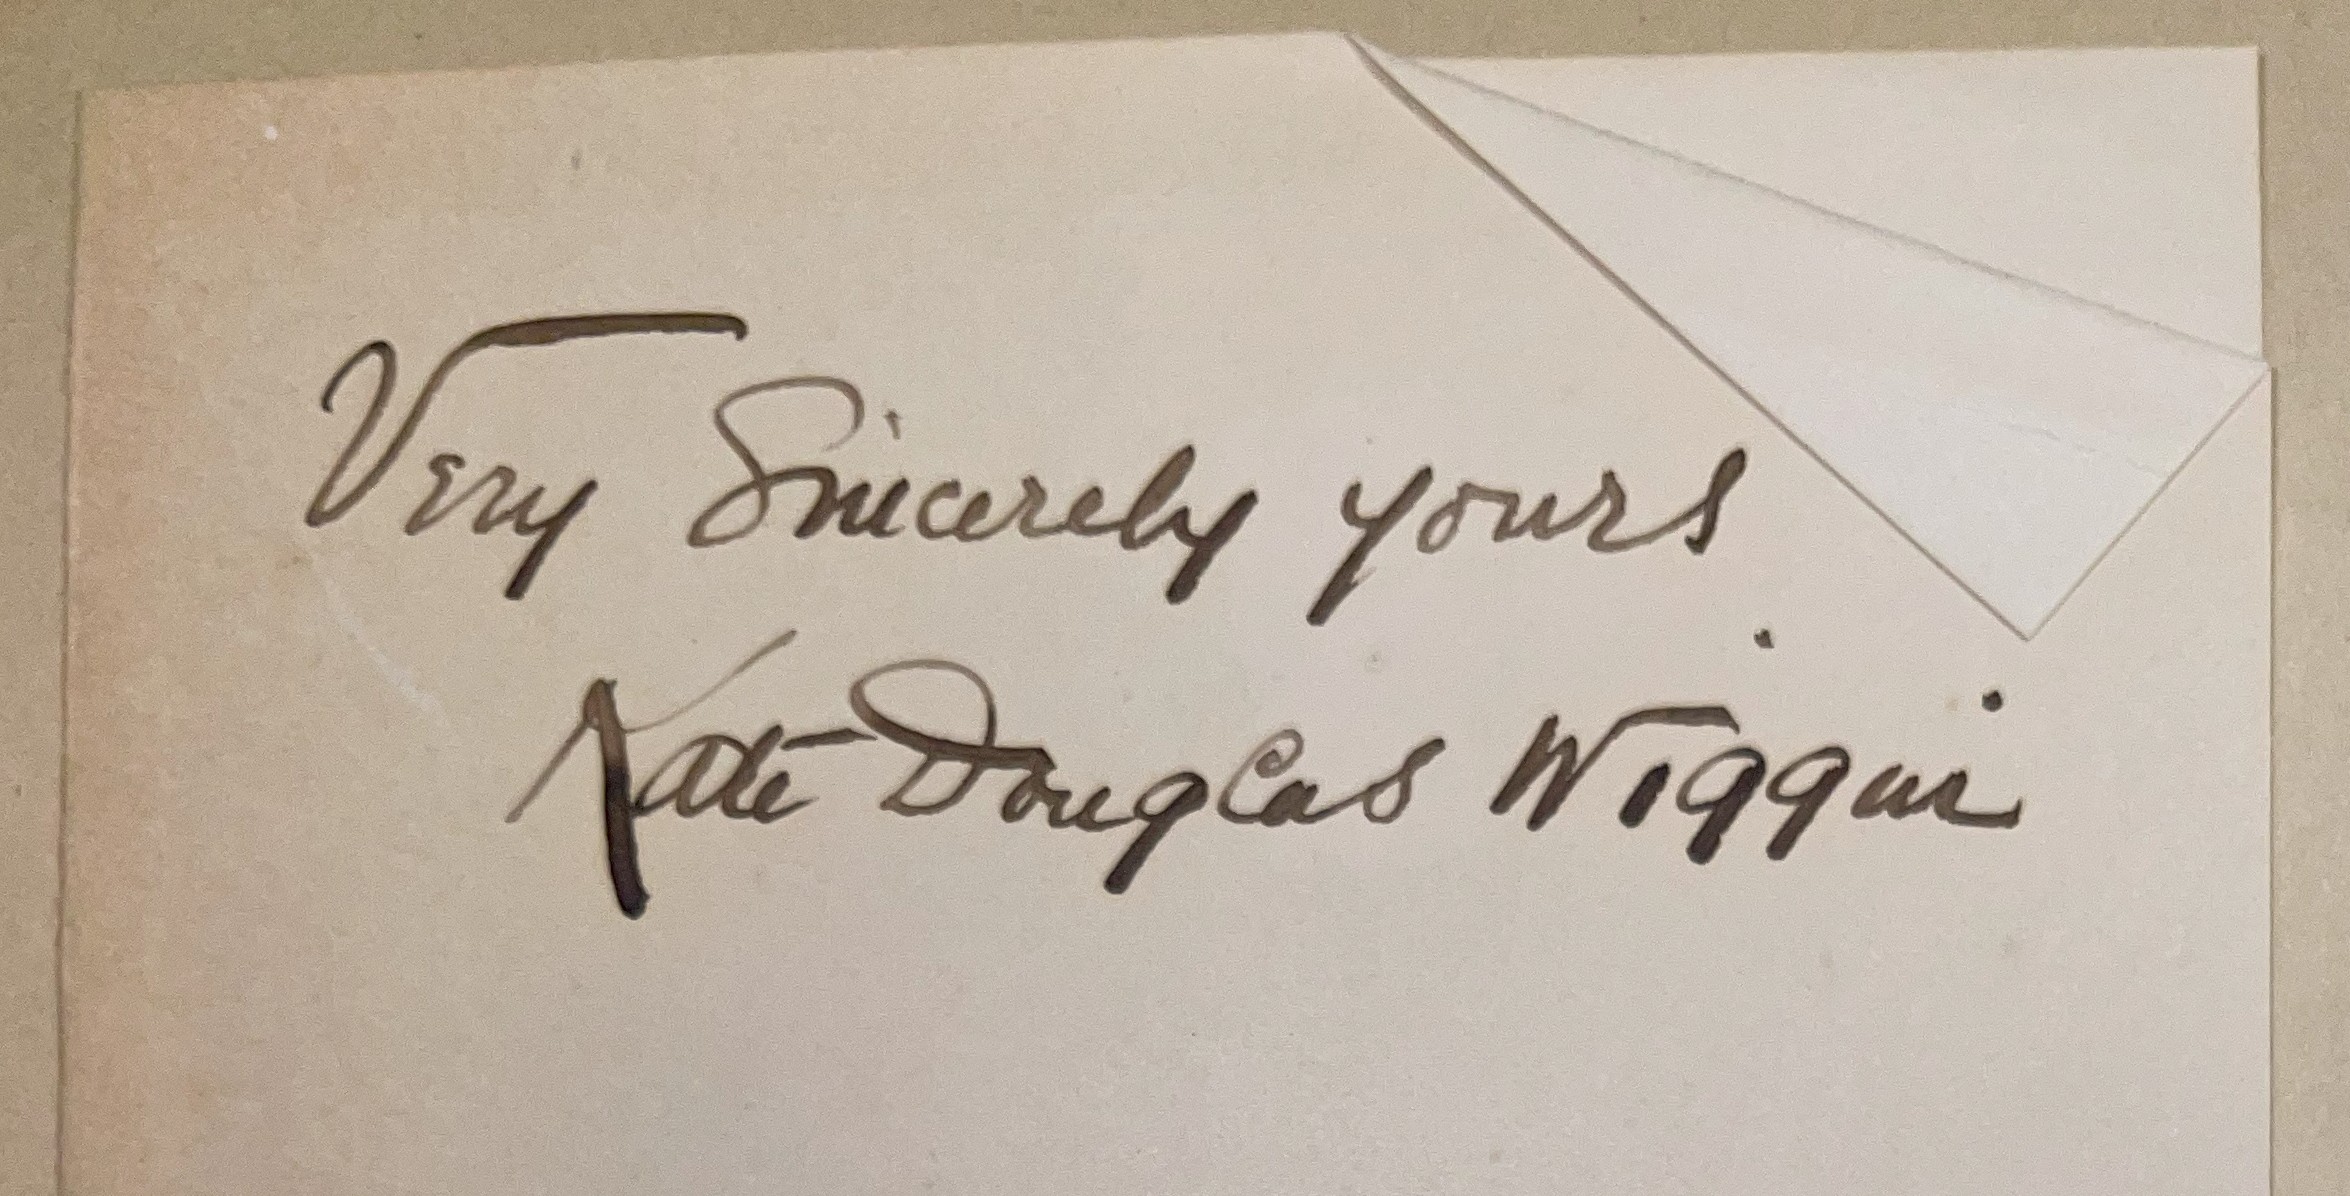 Very Sincerely yours
Kate Douglas Wiggin